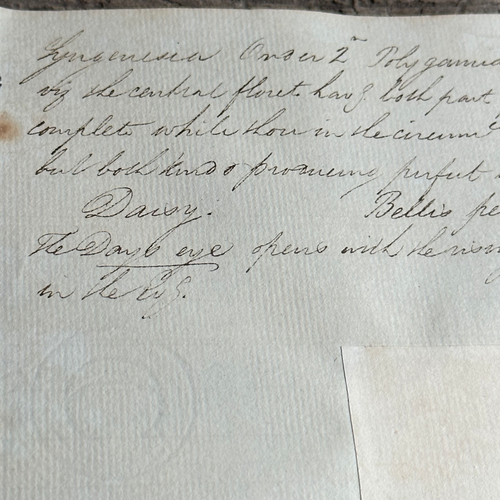 Syngenesia Order 2nd Polygamia
viz the central floret havg both part
complete while those in the circumf
but both kinds producing perfect
Daisy. Bellis pe
The Days eye opens with the risin
in the